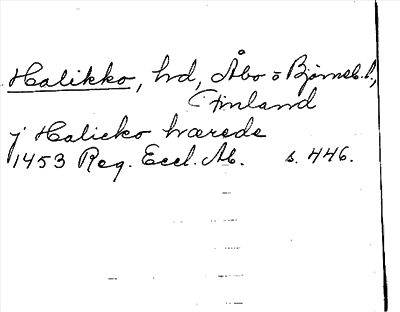 Halikko, hd, Åbo o Bjørneb. l.,
Finland
j Halicko hærede
1453 Reg. Eccl. Ab. s. 446.